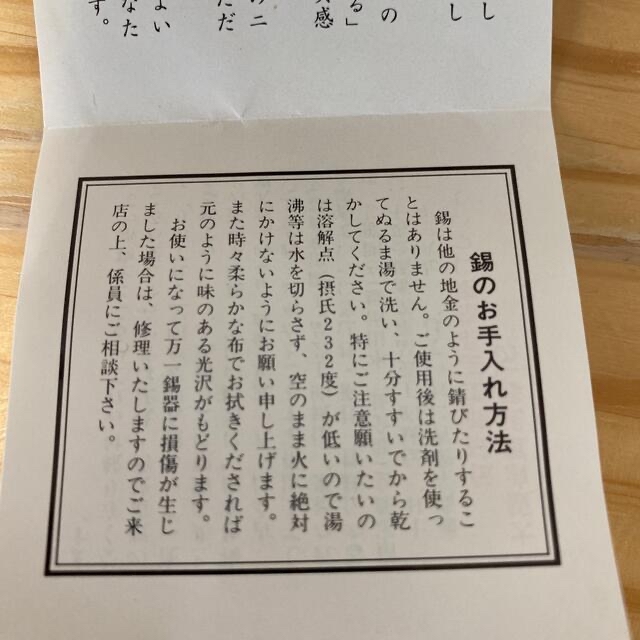 し
し
の
る」
実感
のニ
ただ
よい
なた
す。
錫のお手入れ方法
錫は他の地金のように錆びたりするこ
とはありません。ご使用後は洗剤を使っ
てぬるま湯で洗い、十分すすいでから乾
かしてください。特にご注意願いたいの
は溶解点(摂氏232度)が低いので湯
沸等は水を切らさず、空のまま火に絶対
にかけないようにお願い申し上げます。
また時々柔らかな布でお拭きくだされば
元のように味のある光沢がもどります。
お使いになって万一錫器に損傷が生じ
ました場合は、修理いたしますのでご来
店の上、係員にご相談下さい。